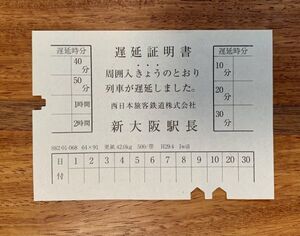 遅延証明書
周囲入きょうのとおり
列車が遅延しました。
西日本旅客鉄道株式会社
新大阪駅長
遅延時分
10分
20分
30分
遅延時分
40分
50分
1時間
2時間
882-01-068 64×91 更紙 42.0kg 500/冊 H29.4 1w済
日付 1 2 3 4 5 6 7 8 9 10 20 30